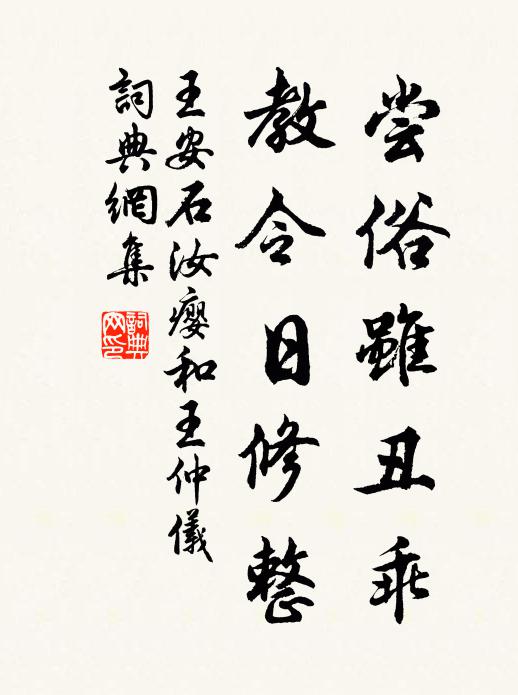 尝俗雖丑乖
教令日修整
王安石汝瘿和王仲儀
詞典網集
詞典網印